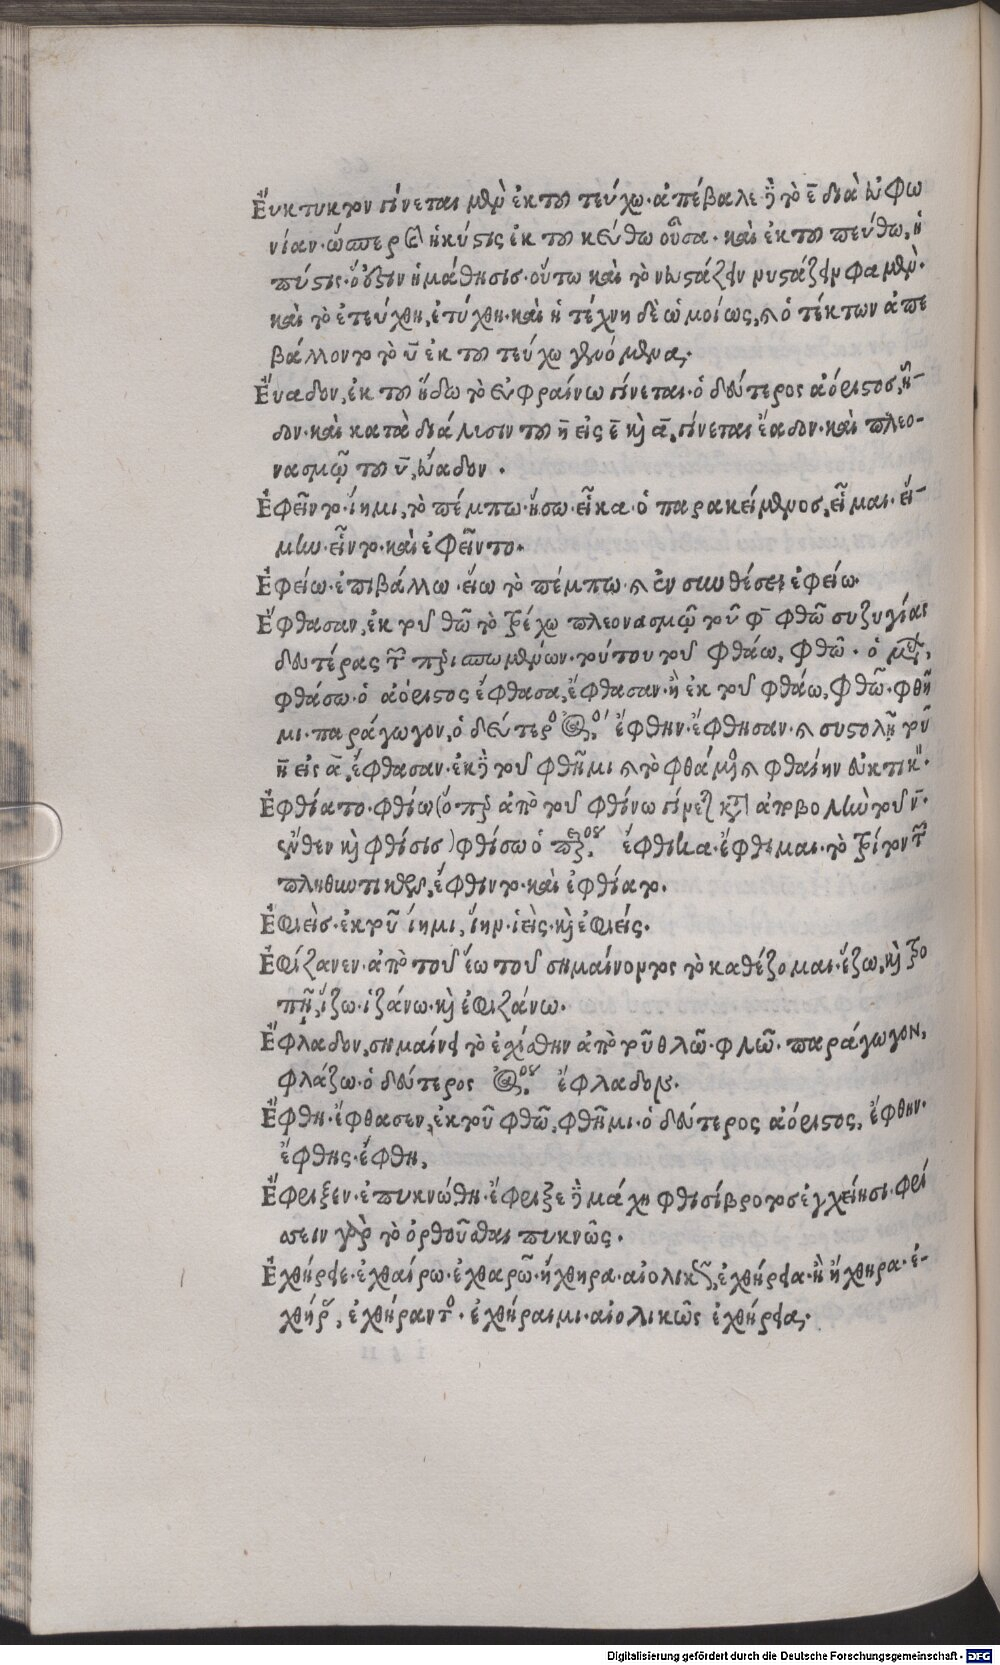 Εὔκτυκτον γίνεται μὲν ἐκ τοῦ τεύχω· ἀπέβαλε δὲ τὸ ε̄ διὰ εὐφω
νίαν· ὥσπερ καὶ ἡ κύστις ἐκ τοῦ κεύθω οὖσα· καὶ ἐκ τοῦ πεύθω, ἡ
πύστις· οὕτω καὶ τὸ νυστάζειν μυστάζειν φαμέν·
καὶ τὸ ἐτεύχθη, ἐτύχθη· καὶ ἡ τέχνη δὲ ὁμοίως, καὶ ὁ τέκτων ἀπε
βάλλοντο τὸ ῡ ἐκ τοῦ τεύχω γενόμενα.
Εὔαδον, ἐκ τοῦ ἥδω τὸ εὐφραίνω γίνεται· ὁ δεύτερος ἀόριστος, ἥ-
δον· καὶ κατὰ διάλισιν τοῦ η̄ εἰς ε̄ καὶ ᾱ, γίνεται ἕαδον· καὶ πλεο-
νασμῷ τοῦ ῡ, εὔαδον.
Ἐφεῖντο· ἵημι, τὸ πέμπω· ἥσω· εἷκα· ὁ παρακείμενος, εἷμαι· εἵ-
μην· εἷντο· καὶ ἐφεῖντο.
Ἐφείω· ἐπιβάλλω· ἕω τὸ πέμπω καὶ ἐν συνθέσει ἐφείω·
Ἔφθασαν, ἐκ τοῦ θῶ τὸ τρέχω πλεονασμῷ τοῦ φ̄ φθῶ συζυγίας
δευτέρας τῶν περισπωμένων· τούτου τοῦ φθάω, φθῶ· ὁ μέλλων,
φθάσω· ὁ ἀόριστος ἔφθασα, ἔφθασαν· ἢ ἐκ τοῦ φθάω, φθῶ· φθῆ
μι· παράγωγον, ὁ δεύτερος ἀόριστος ἔφθην· ἔφθησαν· καὶ συστολῇ τοῦ
η̄ εἰς ᾱ, ἔφθασαν· ἐκ δὲ τοῦ φθῆμι καὶ τὸ φθάμενος καὶ φθαίην εὐκτικῶς·
Ἐφθίατο· φθίω (ὅπερ ἀπὸ τοῦ φθίνω γίνεται κατὰ ἀποβολὴν τοῦ ν̄·
ἔνθεν καὶ φθίσις) φθίσω ὁ ἔφθικα· ἔφθιμαι· τὸ τρίτον τῶν
πληθυντικῶν, ἔφθιντο· καὶ ἐφθίατο.
Ἐφιείς· ἐκ τοῦ ἵημι, ἵην· ἱείς· καὶ ἐφιείς.
Ἐφίζανεν· ἀπὸ τοῦ ἕω τοῦ σημαίνοντος τὸ καθέζομαι· ἕζω, καὶ τρο
πῇ, ἵζω· ἱζάνω· καὶ ἐφιζάνω.
Ἔφλαδον, σημαίνει τὸ ἐχίσθην ἀπὸ τοῦ θλῶ· φλῶ· παράγωγον,
φλάζω· ὁ δεύτερος ἀόριστος ἔφλαδον.
Ἔφθη· ἔφθασεν, ἐκ τοῦ φθῶ, φθῆμι· ὁ δεύτερος ἀόριστος, ἔφθην·
ἔφθης· ἔφθη,
Ἔφριξεν· ἐπυκνώθη· ἔφριξε δὲ μάχη φθισίβροτος ἐγχείησι· φρί
σσειν γὰρ τὸ ὀρθοῦσθαι πυκνῶς.
Ἐχθήρειε· ἐχθαίρω· ἐχθαρῶ· ἤχθηρα· αἰολικῶς, ἐχθήρεια· ἢ ἤχθηρα· ἐ-
χθήρας, ἐχθήραντος· ἐχθήραιμι· αἰολικῶς ἐχθήρειας·
Digitalisierung gefördert durch die Deutsche Forschungsgemeinschaft - DFG